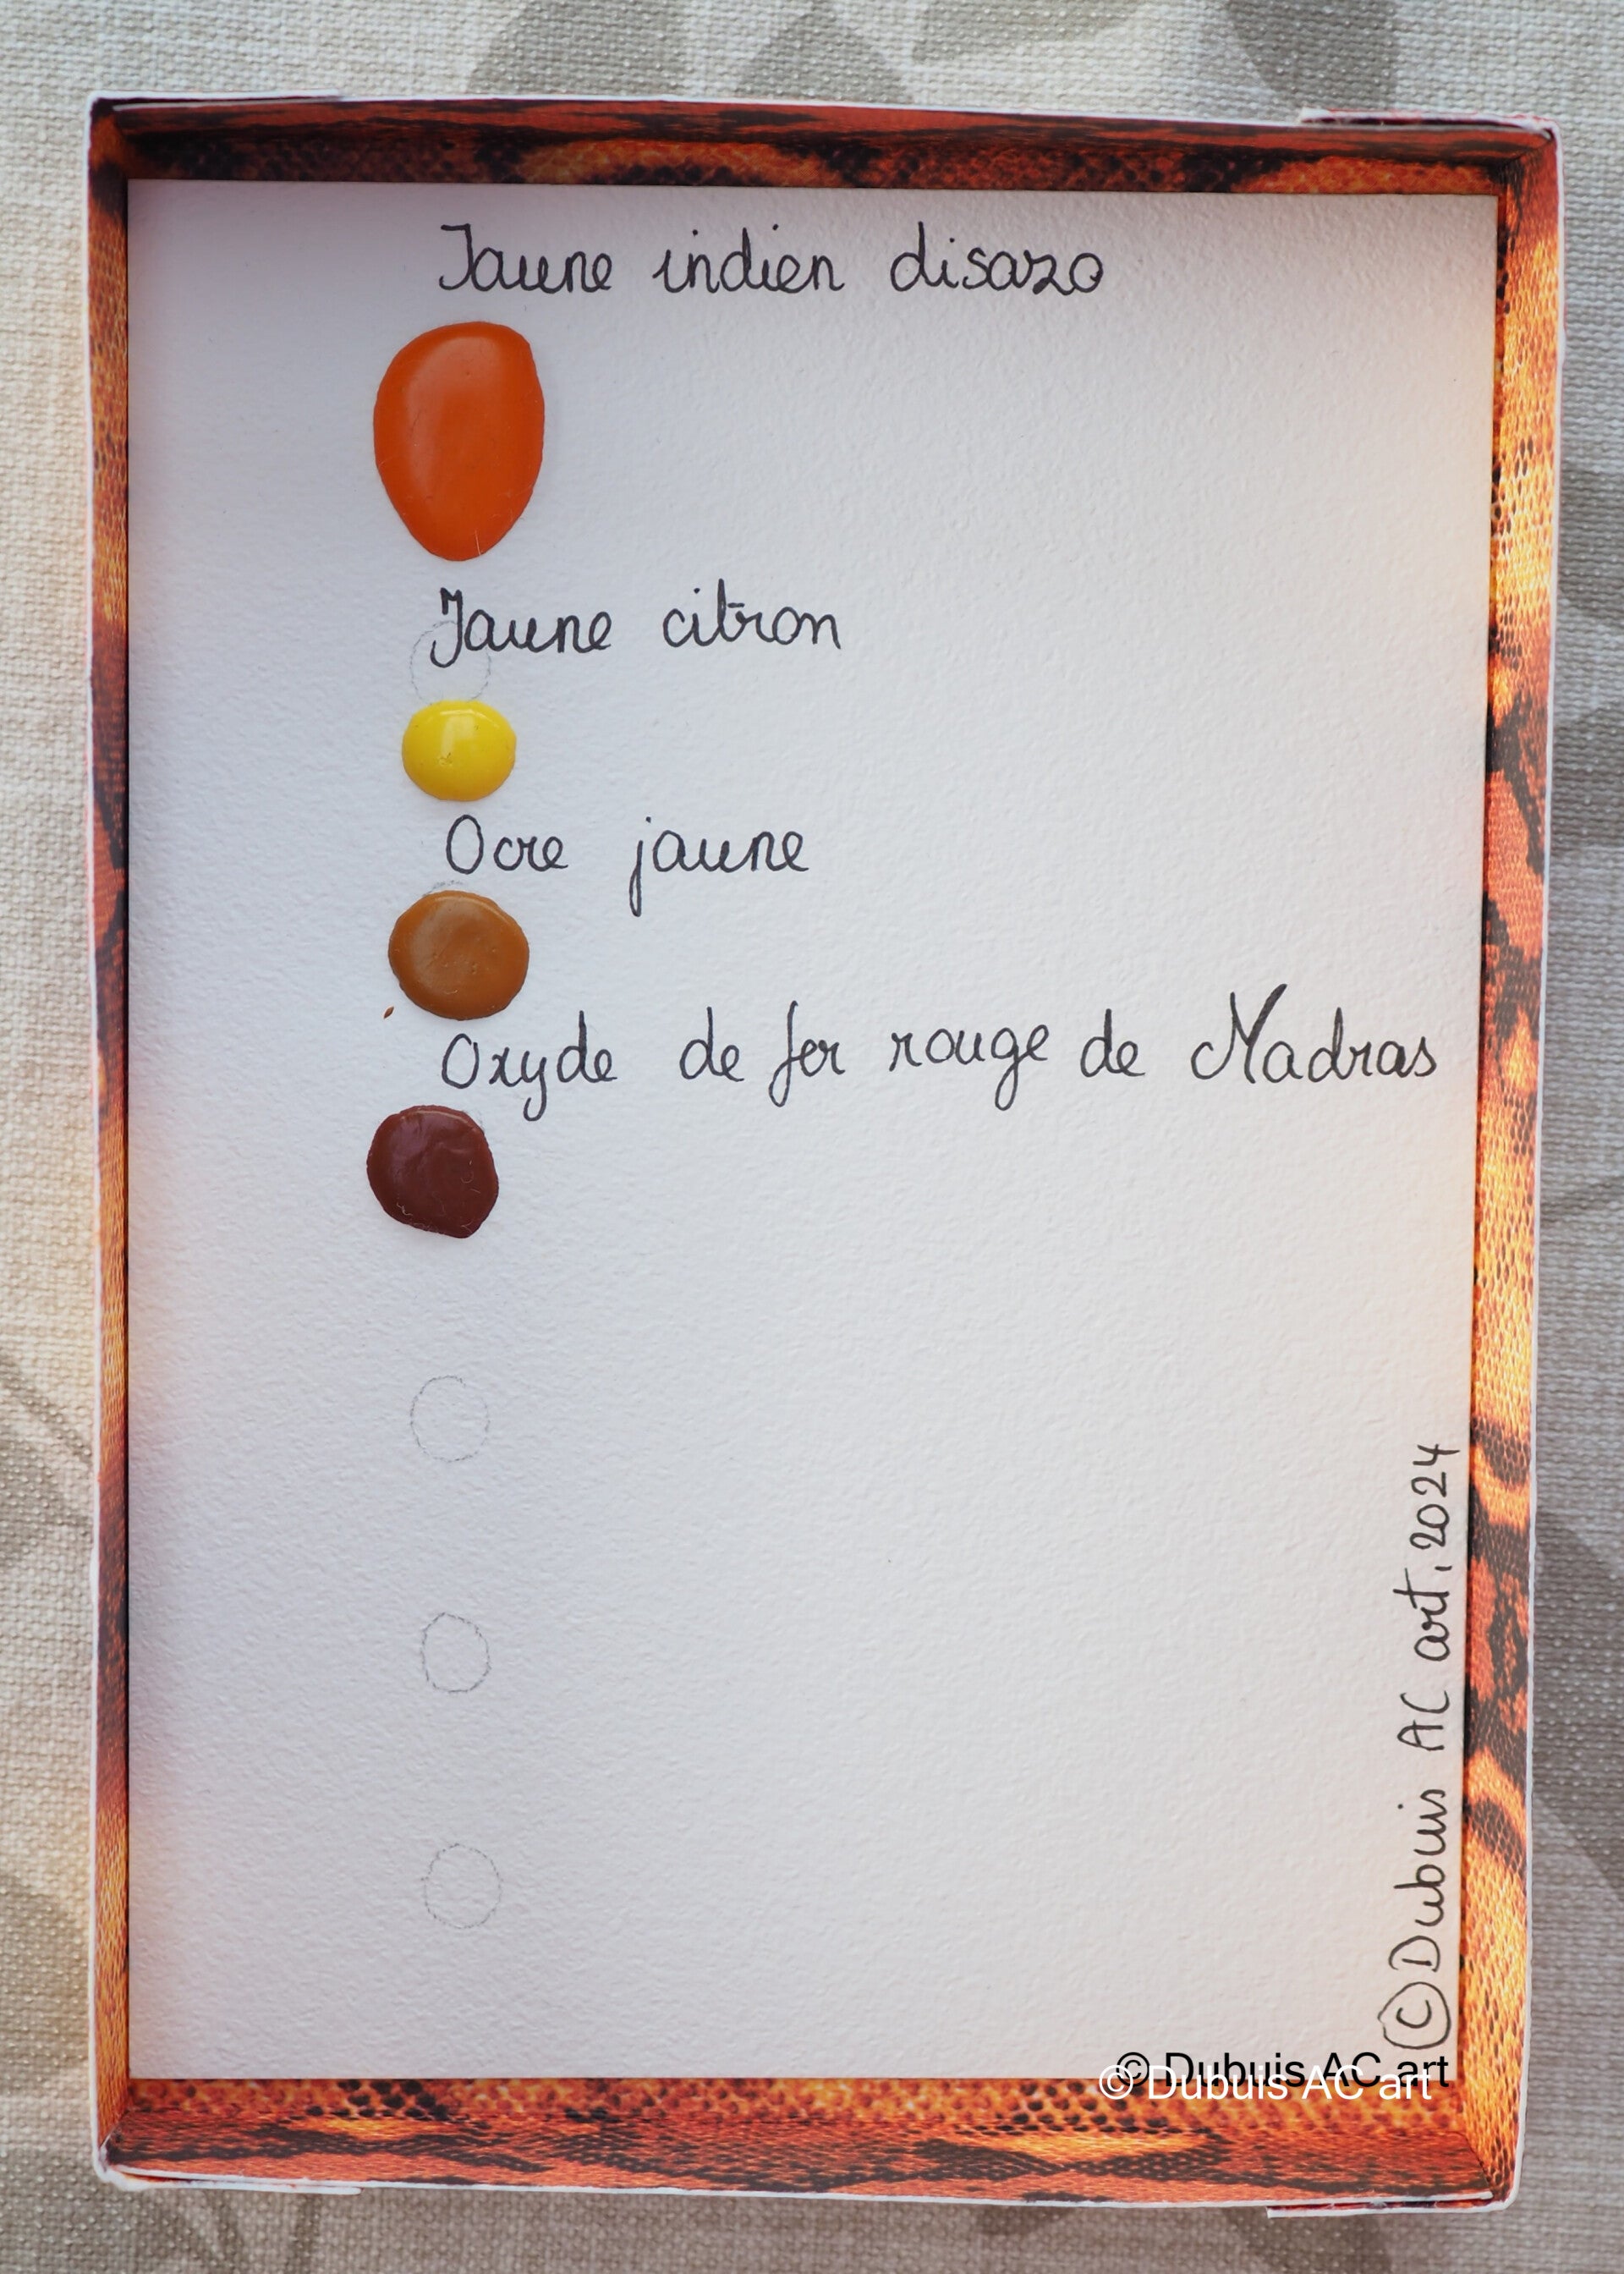 Jaune indien disazo
Jaune citron
Ocre jaune
Oxyde de fer rouge de Madras
© Dubuis AC art, 2024
© Dubuis AC art
© Dubuis AC art